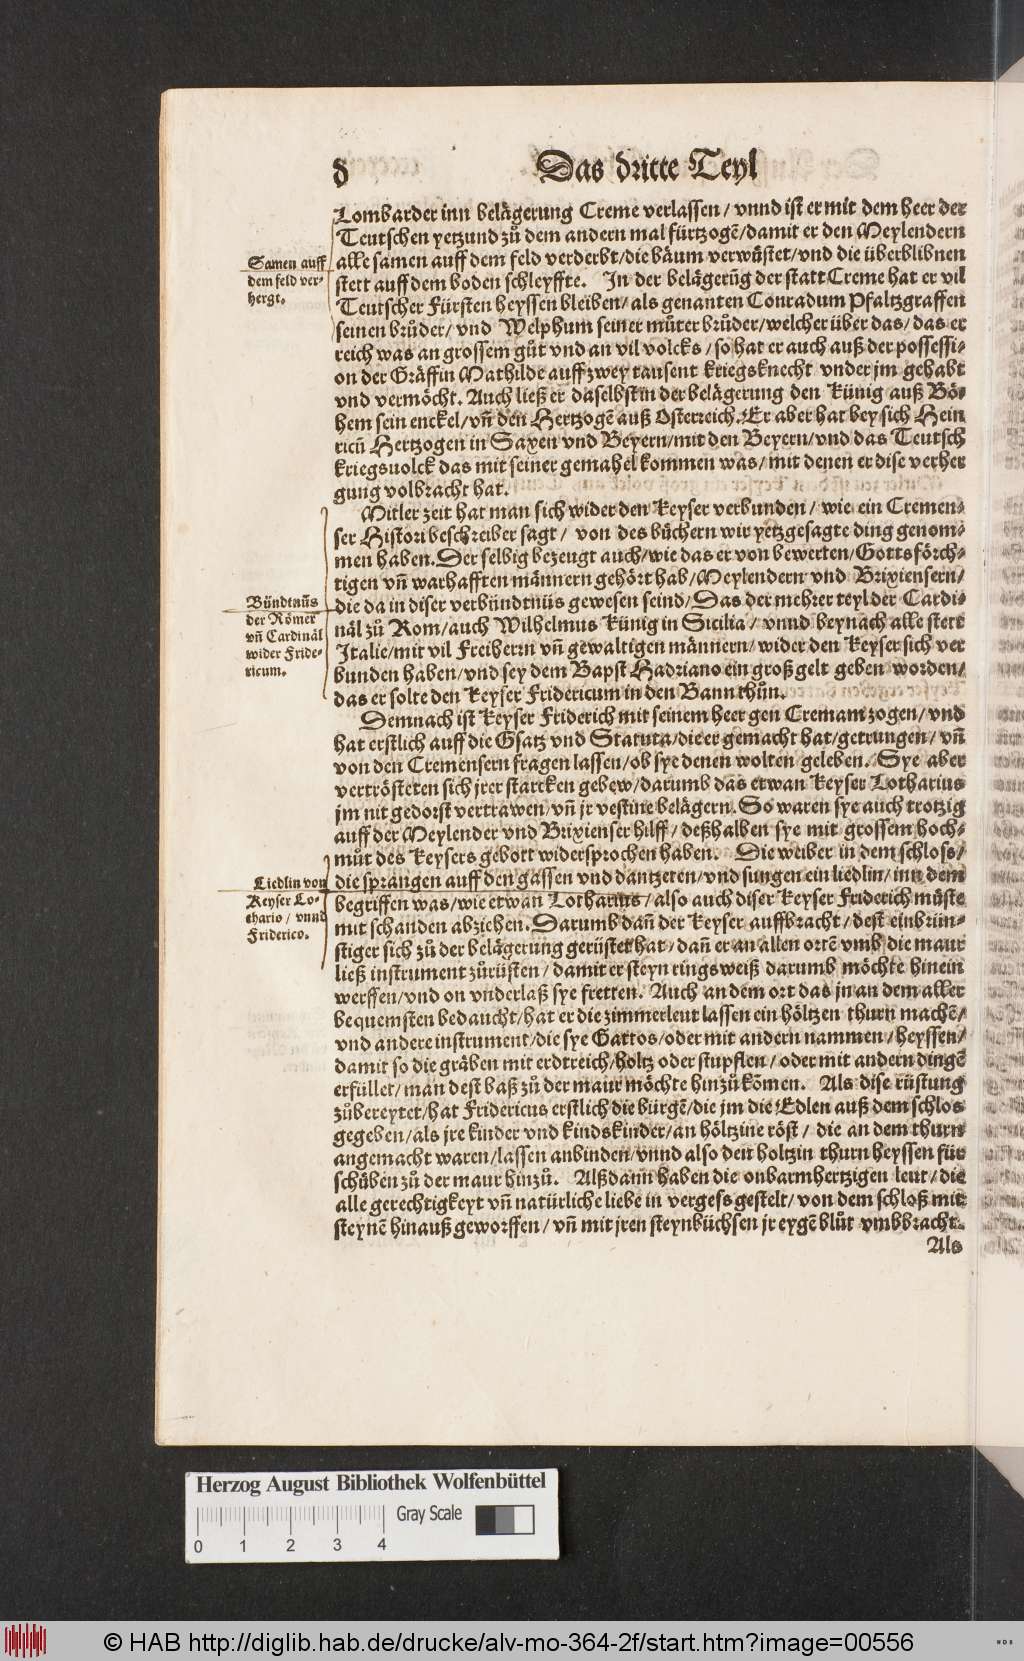 d
Das dritte Teyl
Lombarder inn belägerung Creme verlassen / vnnd ist er mit dem heer der
Teutschen yetzund zů dem andern mal fürtzogẽ / damit er den Meylendern
alle samen auff dem feld verderbt / die bäum verwůstet / vnd die überblibnen
stett auff dem boden schleyffte. In der belägerũg der statt Creme hat er vil
Teutscher Fürsten heyssen bleiben / als genanten Conradum Pfaltzgraffen
seinen brůder / vnd Welphum seiner můter brůder / welcher über das / das er
reich was an grossem gůt vnd an vil volcks / so hat er auch auß der possessi-
on der Gräffin Mathilde auff zwey tausent kriegsknecht vnder jm gehabt
vnd vermöcht. Auch ließ er daselbst in der belägerung den Künig auß Bö-
hem sein enckel / vñ den Hertzogẽ auß Osterreich. Er aber hat bey sich Hein
ricũ Hertzogen in Saxen vnd Beyern / mit den Beyern / vnd das Teutsch
kriegsuolck das mit seiner gemahel kommen was / mit denen er dise verher
gung volbracht hat.
Samen auff
dem feld ver-
hergt.
Mitler zeit hat man sich wider den Keyser verbunden / wie ein Cremen-
ser Histori beschreiber sagt / von des bůchern wir yetzgesagte ding genom-
men haben. Der selbig bezeugt auch / wie das er von bewerten / Gottsförch-
tigen vñ warhafften männern gehört hab / Meylendern vnd Brixiensern /
die da in diser verbündtnüs gewesen seind / Das der mehrer teyl der Cardi-
näl zů Rom / auch Wilhelmus Künig in Sicilia / vnnd beynach alle stett
Italie / mit vil Freiherrn vñ gewaltigen männern / wider den Keyser sich ver
bunden haben / vnd sey dem Bapst Hadriano ein groß gelt geben worden /
das er solte den Keyser Fridericum in den Bann thůn.
Bündtnüs
der Römer
vñ Cardinäl
wider Fride-
ricum.
Demnach ist Keyser Friderich mit seinem heer gen Cremam zogen / vnd
hat erstlich auff die Gsatz vnd Statuta / die er gemacht hat / getrungen / vñ
von den Cremensern fragen lassen / ob sye denen wolten geleben. Sye aber
vertrösteten sich jrer starcken gebew / darumb das etwan Keyser Lotharius
jm nit gedorst vertrawen / vñ jr vestine belägern. So waren sye auch trotzig
auff der Meylender vnd Brixienser hilff / deßhalben sye mit grossem hoch-
můt des Keysers gebott widersprochen haben. Die weiber in dem schloss /
die sprangen auff den gassen vnd dantzeten / vnd sungen ein liedlin / inn dem
begriffen was / wie etwan Lotharius / also auch diser Keyser Friderich můste
mit schanden abziehen. Darumb dañ der Keyser auffbracht / dest einbrün-
stiger sich zů der belägerung gerüstet hat / dañ er an allen ortẽ vmb die maur
ließ instrument zůrüsten / damit er steyn ringsweiß darumb möchte hinein
werffen / vnd on vnderlaß sye fretten. Auch an dem ort das jn an dem aller
bequemsten bedaucht / hat er die zimmerleut lassen ein höltzen thurn machẽ /
vnd andere instrument / die sye Gattos / oder mit andern nammen / heyssen /
damit so die gräben mit erdtreich / holtz oder stupflen / oder mit andern dingẽ
erfüllet / man dest baß zů der maur möchte hinzů kõmen. Als dise rüstung
zůbereytet / hat Fridericus erstlich die bürgẽ / die jm die Edlen auß dem schlos
gegeben / als jre kinder vnd kindskinder / an höltzine röst / die an dem thurn
angemacht waren / lassen anbinden / vnnd also den holtzin thurn heyssen für
schüben zů der maur hinzů. Alßdann haben die onbarmhertzigen leut / die
alle gerechtigkeyt vñ natürliche liebe in vergess gestelt / von dem schloß mit
steynẽ hinauß geworffen / vñ mit jren steynbüchsen jr eygẽ blůt vmbbracht.
Liedlin von
Keyser Lo-
thario / vnnd
Friderico.
Als
Herzog August Bibliothek Wolfenbüttel
Gray Scale
0 1 2 3 4
© HAB http://diglib.hab.de/drucke/alv-mo-364-2f/start.htm?image=00556